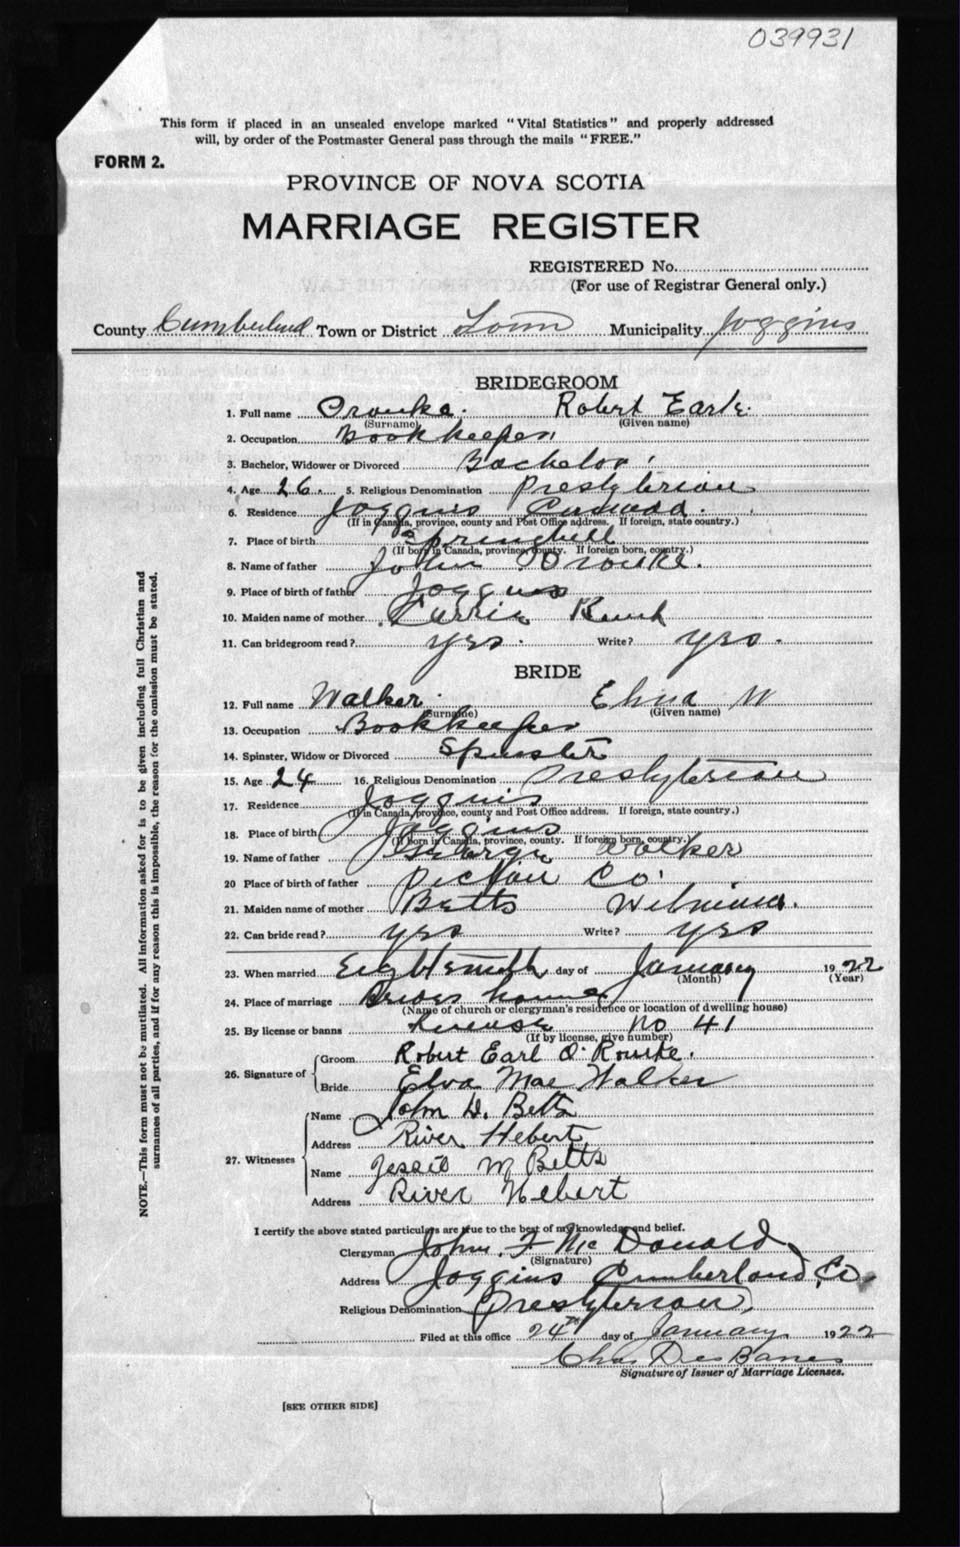 039931
This form if placed in an unsealed envelope marked "Vital Statistics" and properly addressed
will, by order of the Postmaster General pass through the mails "FREE."
FORM 2.
PROVINCE OF NOVA SCOTIA
MARRIAGE REGISTER
REGISTERED No.
(For use of Registrar General only.)
County Cumberland Town or District Town Municipality Joggins
BRIDEGROOM
1. Full name Orourke. Robert Earle.
(Surname) (Given name)
2. Occupation Bookkeeper
3. Bachelor, Widower or Divorced Bachelor
4. Age 26. 5. Religious Denomination Presbyterian
6. Residence Joggins
(If in Canada, province, county and Post Office address. If foreign, state country.)
7. Place of birth Springhill
(If born in Canada, province, county. If foreign born, country.)
8. Name of father John Orourke.
9. Place of birth of father Joggins
10. Maiden name of mother Carrie
11. Can bridegroom read? yes. Write? yes.
BRIDE
12. Full name Walker. W
(Surname) (Given name)
13. Occupation Bookkeeper
14. Spinster, Widow or Divorced Spinster
15. Age 24 16. Religious Denomination Presbyterian
17. Residence Joggins
(If in Canada, province, county and Post Office address. If foreign, state country.)
18. Place of birth Joggins
(If born in Canada, province, county. If foreign born, country.)
19. Name of father George Walker
20 Place of birth of father Pictou Co.
21. Maiden name of mother Betts
22. Can bride read? yes Write? yes
23. When married Eighteenth day of January 1922
(Month) (Year)
24. Place of marriage Brides home
(Name of church or clergyman's residence or location of dwelling house)
25. By license or banns License No 41
(If by license, give number)
26. Signature of Groom Robert Earl O'Rourke.
Bride Elva Mae Walker
27. Witnesses Name John D. Betts
Address River Hebert
Name Jessie M Betts
Address River Hebert
I certify the above stated particulars are true to the best of my knowledge and belief.
Clergyman John. F. McDonald
(Signature)
Address Joggins Cumberland, Co.
Religious Denomination Presbyterian
Filed at this office 24th day of January 1922
Chas DesBarres
Signature of Issuer of Marriage Licenses.
[SEE OTHER SIDE]
NOTE.—This form must not be mutilated. All information asked for is to be given including full Christian and
surnames of all parties, and if for any reason this is impossible, the reason for the omission must be stated.